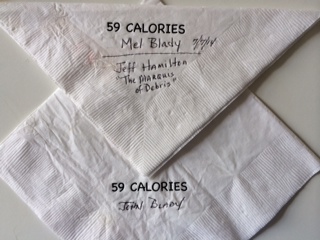 59 CALORIES
Mel Blady 7/7/14
Jeff Hamilton
"The Marquis
of Debris"
59 CALORIES
John